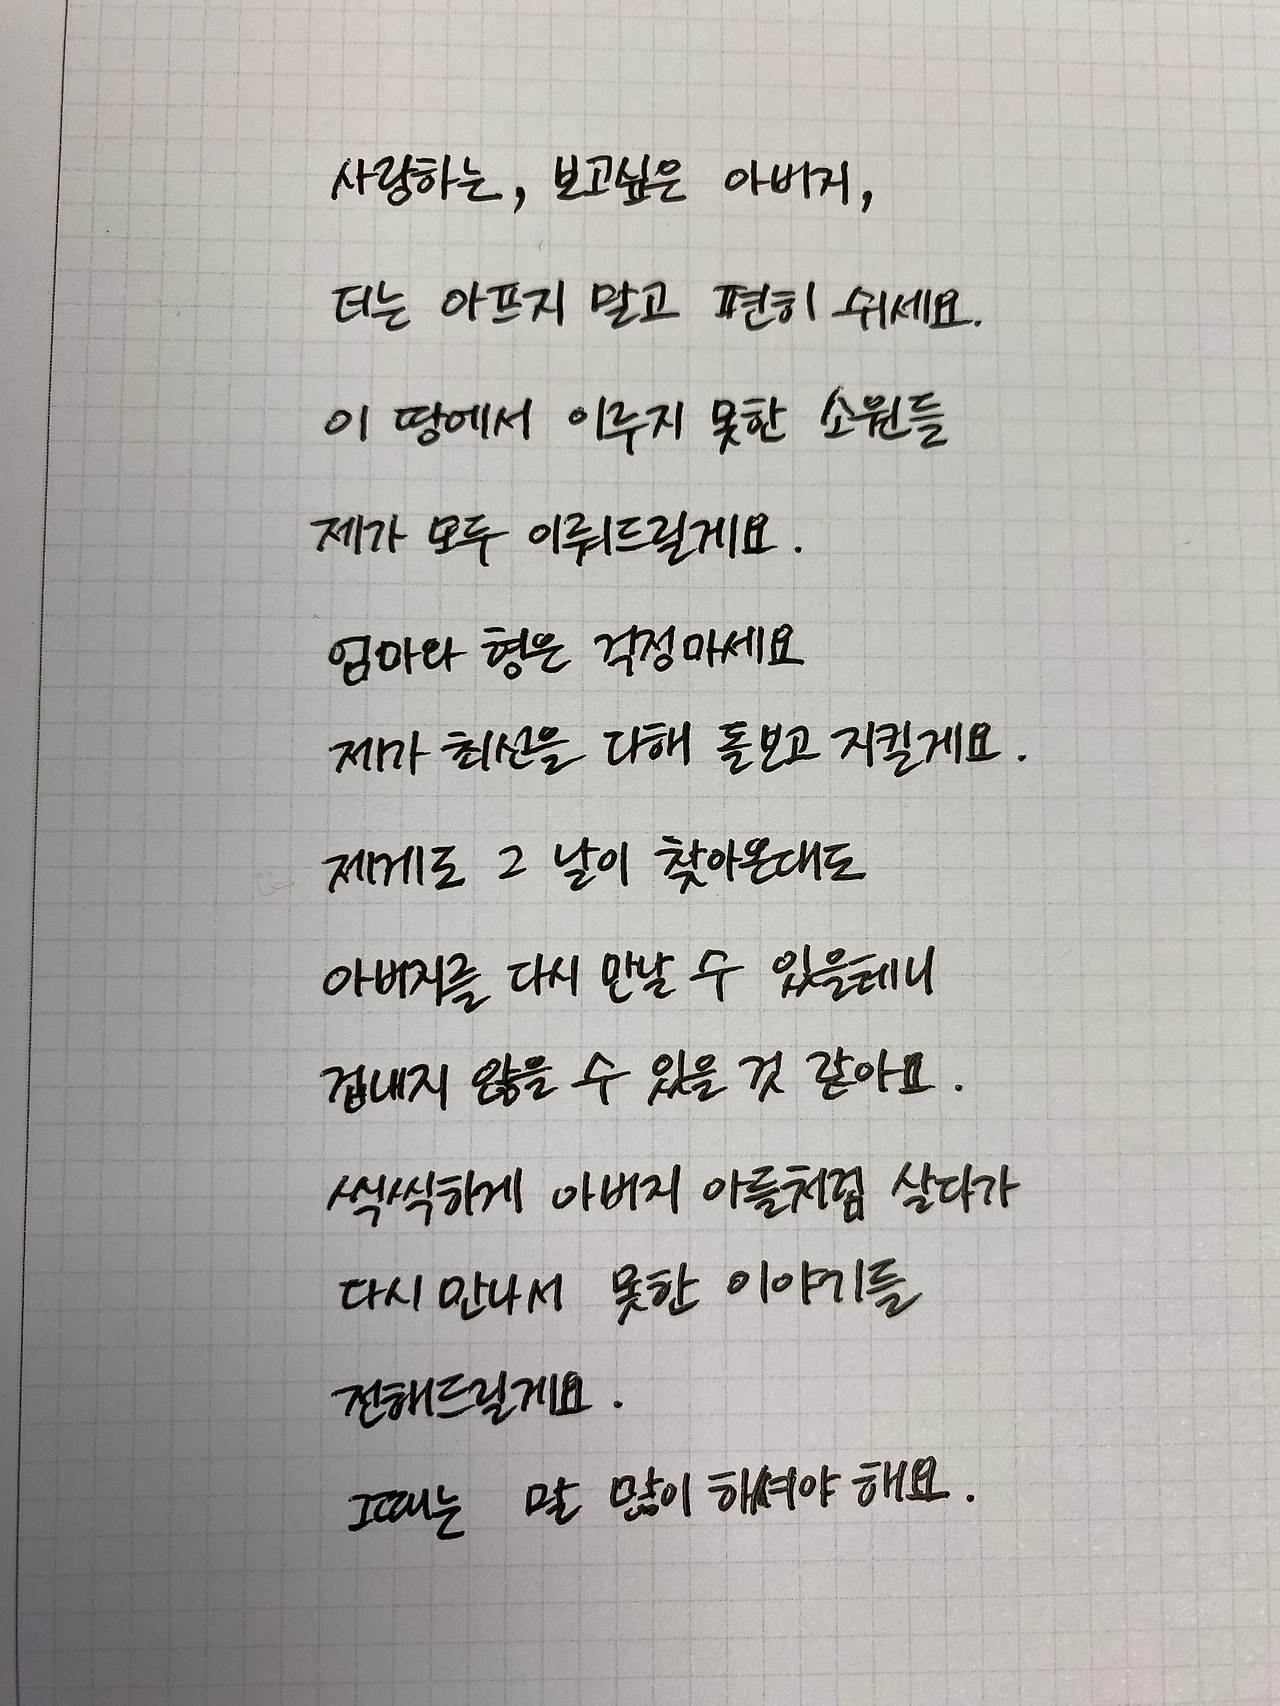 사랑하는, 보고싶은 아버지,
더는 아프지 말고 편히 쉬세요.
이 땅에서 이루지 못한 소원들
제가 모두 이뤄드릴게요.
엄마와 형은 걱정마세요
제가 최선을 다해 돌보고 지킬게요.
제게도 그 날이 찾아온대도
아버지를 다시 만날 수 있을테니
겁내지 않을 수 있을 것 같아요.
씩씩하게 아버지 아들처럼 살다가
다시 만나서 못한 이야기들
전해드릴게요.
그때는 말 많이 하셔야 해요.